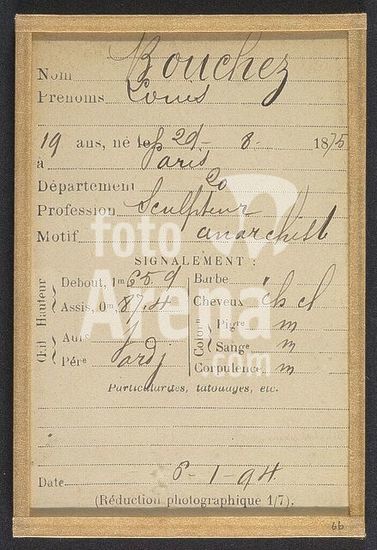 Nom Bouchez
Prénoms Louis
19 ans, né le 29 - 8 - 1875
à Paris
Département do
Profession Sculpteur
Motif anarchiste
SIGNALEMENT :
Œil Hauteur
Debout, 1m 65.9
Assis, 0m 87.4
Aure
Pére
Barbe
Cheveux ch cl
Color
Pigre m
Sange m
Corpulence m
Particularités, tatouages, etc.
Date 6-1-94
(Réduction photographique 1/7).
6b
foto
Arena
.com